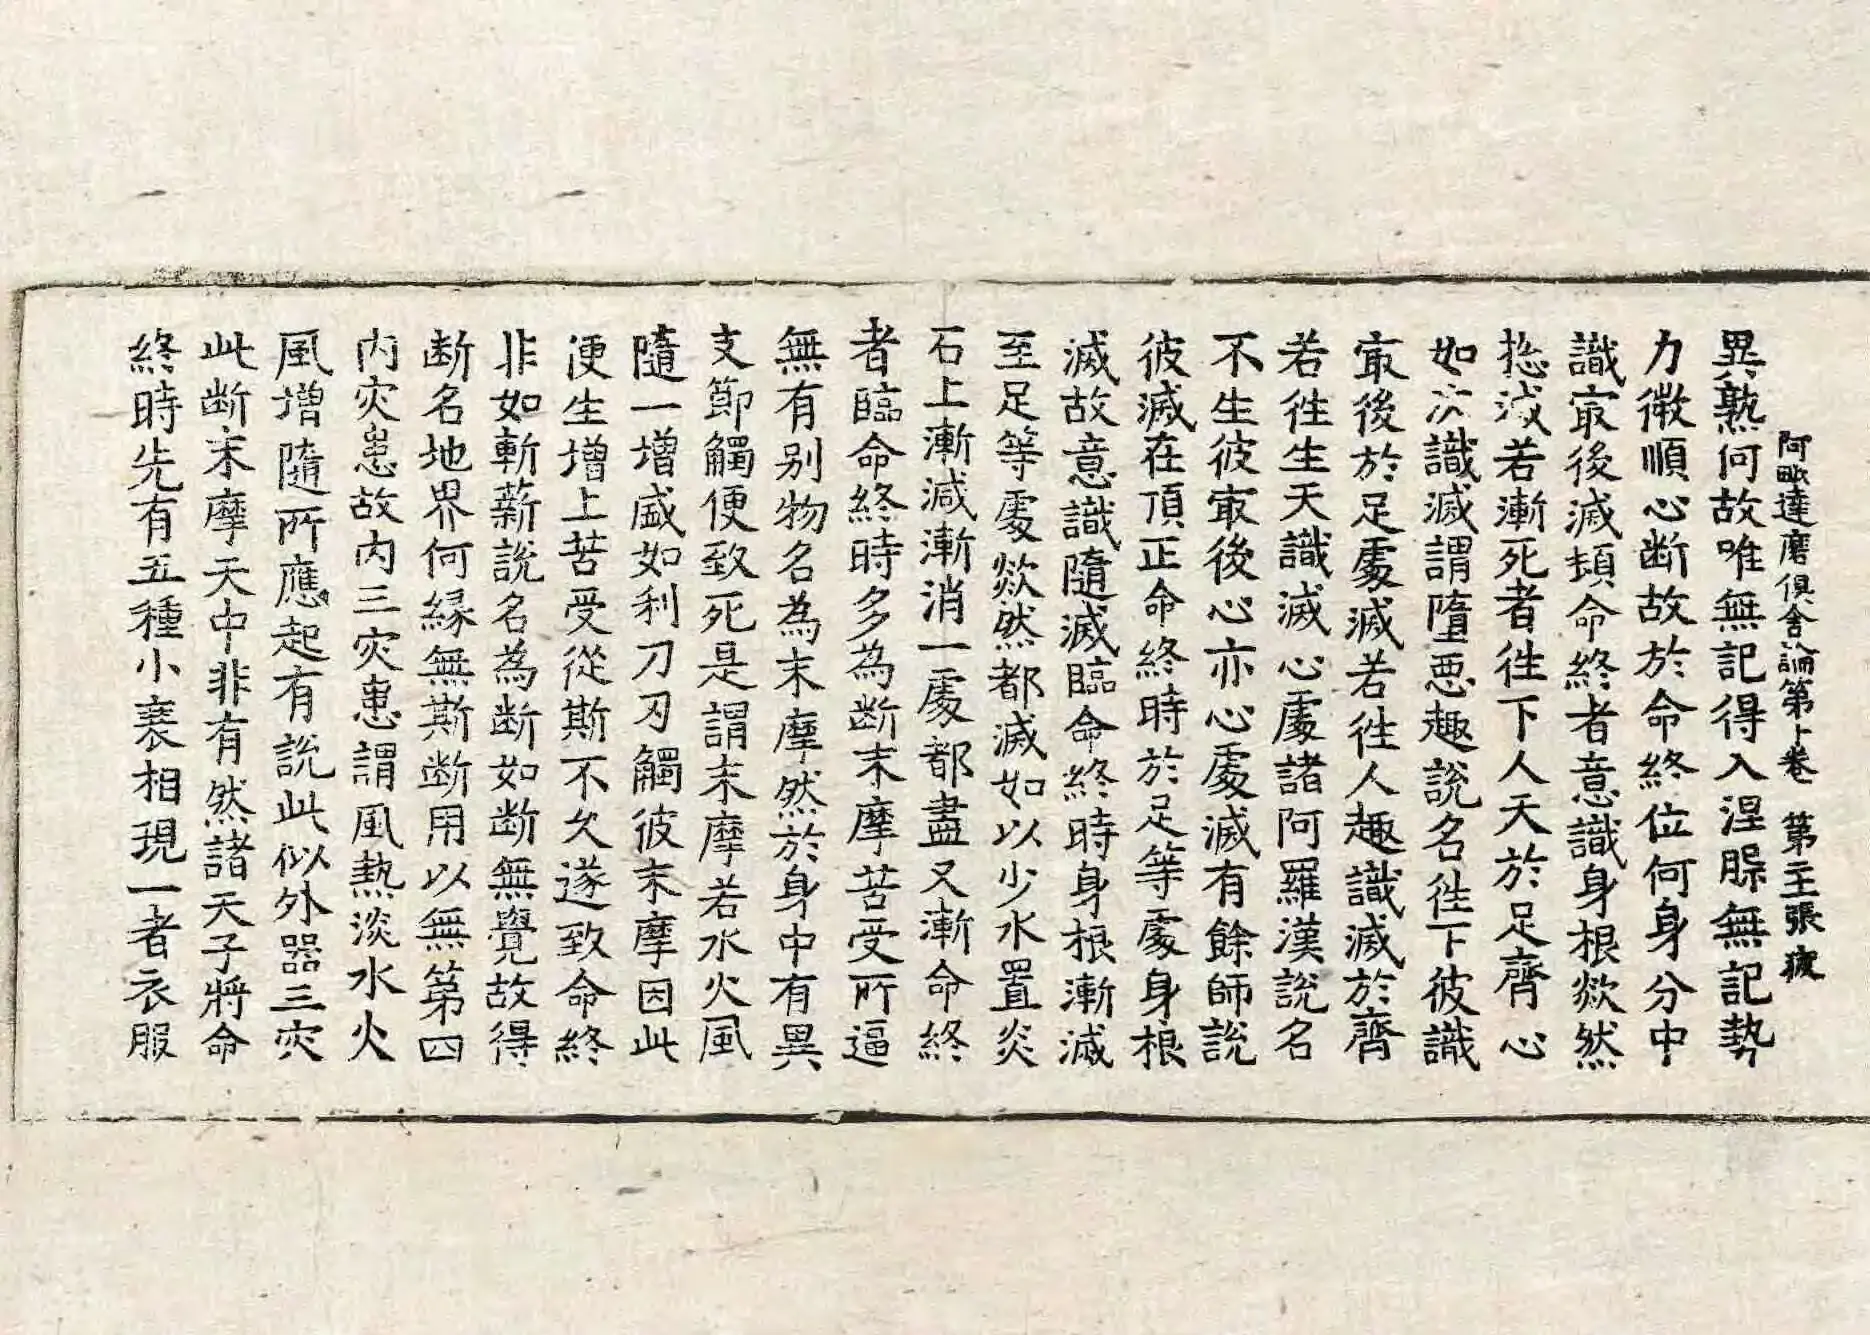 阿毗達磨俱舍論第十卷 第二主張 疲
異熟何故唯無記得入涅槃無記勢
力微順心断故於命終位何身分中
識㝡後滅頓命終者意識身根歘然
揔滅若漸死者徃下人天於足齊心
如次識滅謂墮悪趣說名徃下彼識
㝡後於足處滅若徃人趣識滅於齊
若徃生天識滅心處諸阿羅漢說名
不生彼㝡後心亦心處滅有餘師說
彼滅在頂正命終時於足等處身根
滅故意識隨滅臨命終時身根漸滅
至足等處歘然都滅如以少水置炎
石上漸減漸消一處都盡又漸命終
者臨命終時多為断末摩苦受所逼
無有別物名為末摩然於身中有異
支節觸便致死是謂末摩若水火風
隨一增盛如利刀刃觸彼末摩因此
便生增上苦受從斯不久遂致命終
非如斬薪說名為断如断無覺故得
断名地界何緣無斯断用以無第四
内灾患故内三灾患謂風熱淡水火
風增隨所應起有說此似外器三灾
此断末摩天中非有然諸天子將命
終時先有五種小衰相現一者衣服